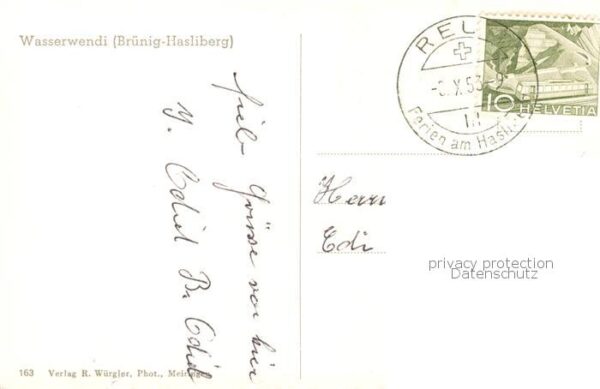 Wasserwendi (Brünig-Hasliberg)
viele Grüsse von hier
REU
X.53-9
III
Ferien am Hasli
10 HELVETIA
Herrn
Edi
privacy protection
Datenschutz
163 Verlag R. Würgler, Phot., Meiringen